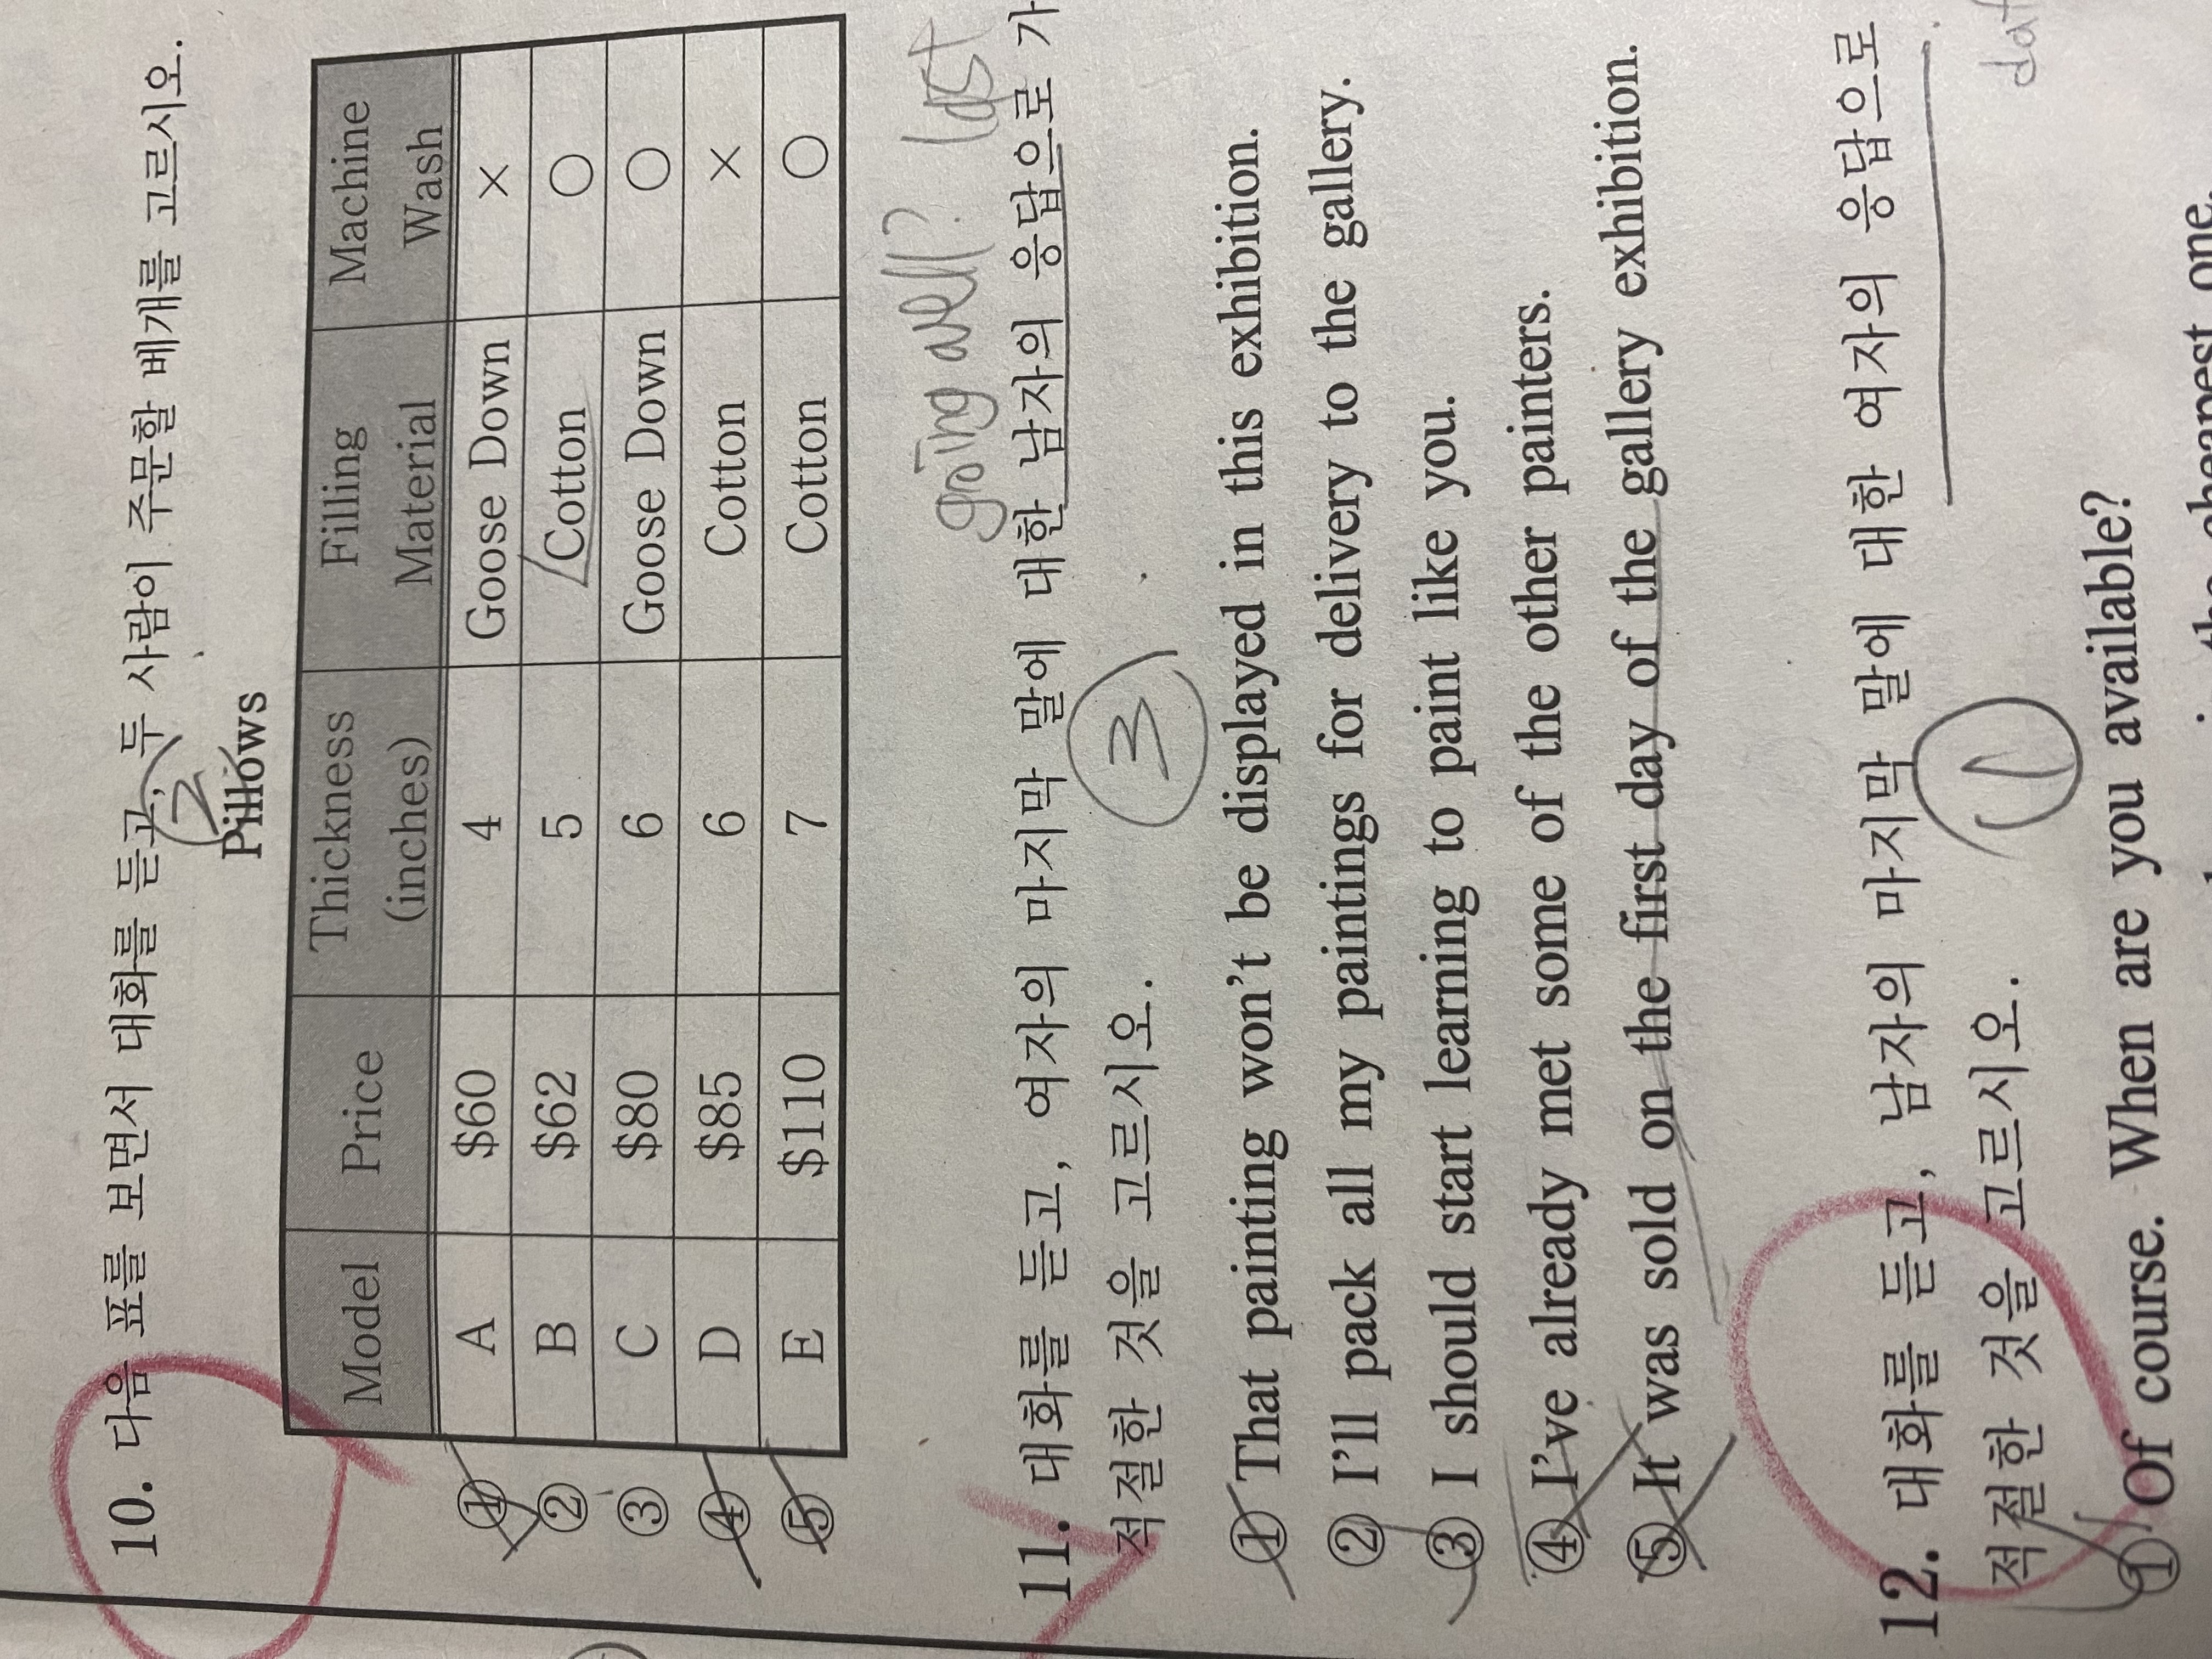 10. 다음 표를 보면서 대화를 듣고, 두 사람이 주문할 베개를 고르시오.
2
Pillows
Model Price Thickness (inches) Filling Material Machine Wash
① A $60 4 Goose Down ×
② B $62 5 Cotton ○
③ C $80 6 Goose Down ○
④ D $85 6 Cotton ×
⑤ E $110 7 Cotton ○
going well? last
11. 대화를 듣고, 여자의 마지막 말에 대한 남자의 응답으로 가
적절한 것을 고르시오.
3
① That painting won't be displayed in this exhibition.
② I'll pack all my paintings for delivery to the gallery.
③ I should start learning to paint like you.
④ I've already met some of the other painters.
⑤ It was sold on the first day of the gallery exhibition.
12. 대화를 듣고, 남자의 마지막 말에 대한 여자의 응답으로
적절한 것을 고르시오.
1
① Of course. When are you available?
cheapest one.